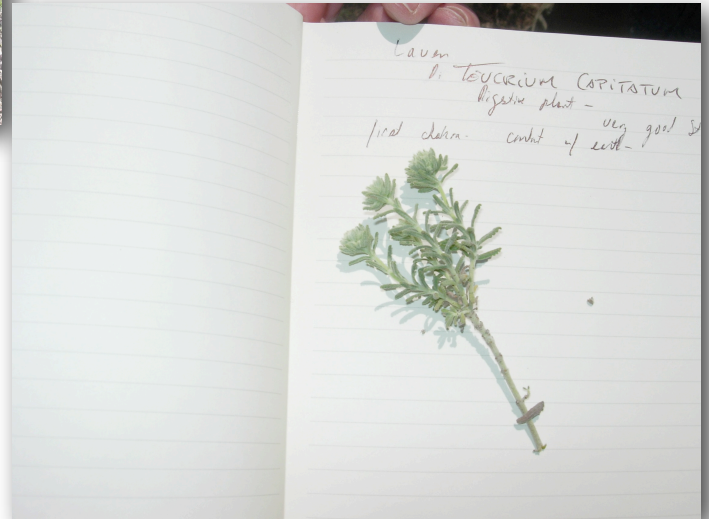 Lauen
Di TEUCRIUM CAPITATUM
Digestive plant -
very good
chakra. contact w/ earth -